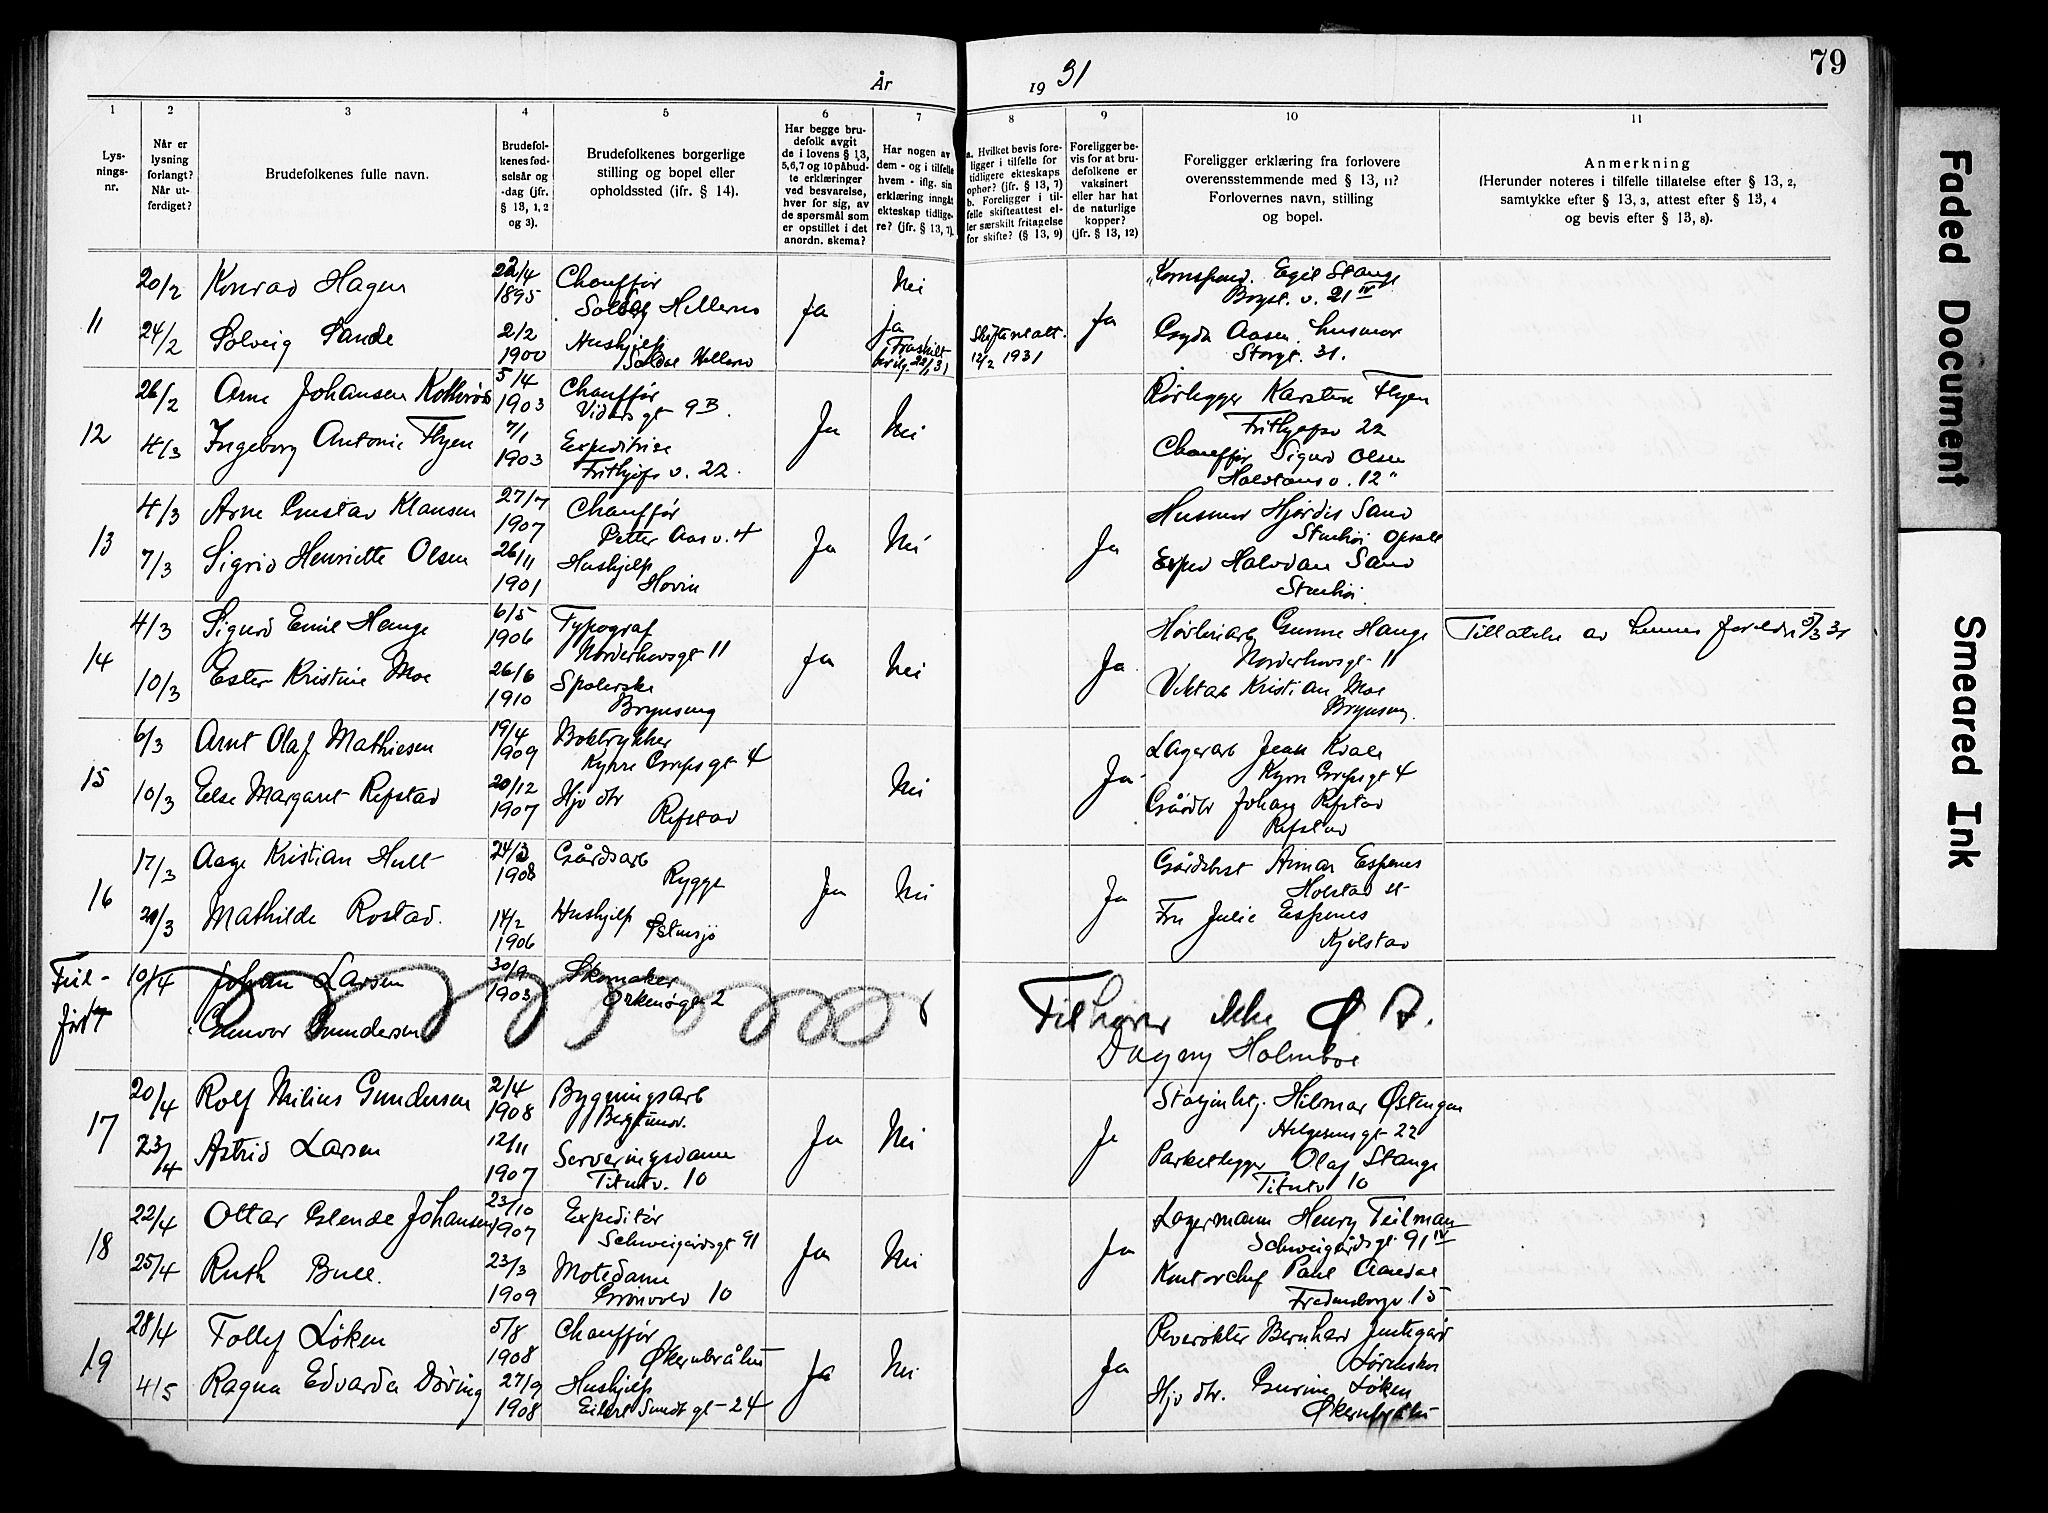 79
År
19 31
1
2
3
4
5
6
7
8
9
10
11
Lys-
nings-
nr.
Når er
lysning
forlangt?
Når ut-
ferdiget?
Brudefolkenes fulle navn.
Brudefol-
kenes fød-
selsår og
-dag (jfr.
§ 13, 1, 2
og 3).
Brudefolkenes borgerlige
stilling og bopel eller
opholdssted (jfr. § 14).
Har begge bru-
defolk avgit
de i lovens § 13,
5,6,7 og 10 påbud-
te erklæringer
ved besvarelse,
hver for sig, av
de spørsmål som
er opstillet i det
anordn. skema?
Har nogen av
dem - og i tilfelle
hvem - iflg. sin
erklæring inngått
ekteskap tidlige-
re? (jfr. § 13, 7).
a. Hvilket bevis fore-
ligger i tilfelle for
tidligere ekteskaps
ophør? (jfr. § 13, 7)
b. Foreligger i til-
felle skifteattest el-
ler særskilt fritagelse
for skifte? (§ 13, 9)
Foreligger be-
vis for at bru-
defolkene er
vaksinert
eller har hat
de naturlige
kopper?
(jfr. § 13, 12)
Foreligger erklæring fra forlovere
overensstemmende med § 13, 11?
Forlovernes navn, stilling
og bopel.
Anmerkning
(Herunder noteres i tilfelle tillatelse efter § 13, 2,
samtykke efter § 13, 3, attest efter § 13, 4
og bevis efter § 13, 8).
11
20/2 Konrad Hagen 22/4 1895 Chauffør
Hellerud Ja Nei
Egil Stange
v. 21 IV
24/2 Solveig Sande 2/2 1900 Hushjelp
ja
22/1 31
12/2 1931
Ja
Gyda Aasen, husmor
Storgt. 31.
12
26/2 Arne Johansen 5/4 1903 Chauffør
Vidars gt 9B.
Ja Nei
Rørlegger Karsten Thyen
Frithjofsv 22
4/3 Ingeborg Antonie Thyen 7/1 1903 Expeditrise
Frithjofs v. 22.
Chauffør Sigurd Olsen
Halvdans v. 12"
13
4/3 Arne Gustav Klausen 27/7 1907 Chauffør
Petter Aas v. 4
Ja Nei Ja
Husmor Hjørdis Sand
Stenhøi Opsal
7/3 Sigrid Henriette Olsen 26/11 1901 Hushjelp
Hovin
Exped Halvdan Sand
Stenhøi
14
4/3 Sigurd Emil Hauge 6/5 1906 Typograf
Norderhovsgt 11
Ja Nei Ja
Gunnar Hauge
Norderhovsgt 11
Tillatelse av hennes foreldre 5/3 31
10/3 Ester Kristine Moe 26/6 1910 Spolerske
Brynseng
Kristian Moe
Brynseng.
15
6/3 Arnt Olaf Mathiesen 19/4 1909 Boktrykker
Kyrre Grepsgt 4
Nei Ja
Lagerarb Jean Kvale
Kyrre Grepsgt 4
10/3 Else Margaret Refstad 20/12 1907 Hjv dtr
Refstad
Gårdbr Johan Refstad
Refstad
16
17/3 Aage Kristian Hull 24/3 1908 Gårdsarb
Rygge
Ja Nei Ja
Gårdsbest Armar Espenes
Holstad st
20/3 Mathilde Rostad. 14/2 1906 Hushjelp
Østensjø
Fru Julie Espenes
Kjølstad
Feil-
ført
10/4 Johan Larsen 30/9 1903 Skomaker
Orknøgt 2
Tilhører ikke Ø. A.
Gunvor Gundersen
Dagny Holmboe
17
20/4 Rolf Milius Gundersen 2/4 1908 Bygningsarb
Bergtunv.
Ja Nei Ja
Hilmar Østengen
Helgesensgt 22
23/4 Astrid Larsen 12/11 1907 Serveringsdame
Titutv. 10
Parketlegger Olaf Stange
Titutv 10
18
22/4 Ottar Glende Johansen 23/10 1907 Expeditør
Schweigårdsgt 91
Ja Nei Ja
Lagermann Henry Teilman
Schweigårdsgt 91 IV
25/4 Ruth Bull. 23/3 1909 Motedame
Grønvold 10
Kontorchef Paul Aamdal
Fredensborgv. 15
19
28/4 Tollef Løken 5/8 1908 Chauffør
Økernbråten
Ja Nei Ja
Bernhard
Lørenskog
4/5 Ragna Edvarda Døving 27/9 1908 Hushjelp
Eilert Sundt gt 24
Hjv dtr. Gurine Løken
Økernbråten
Faded Document
Smeared Ink